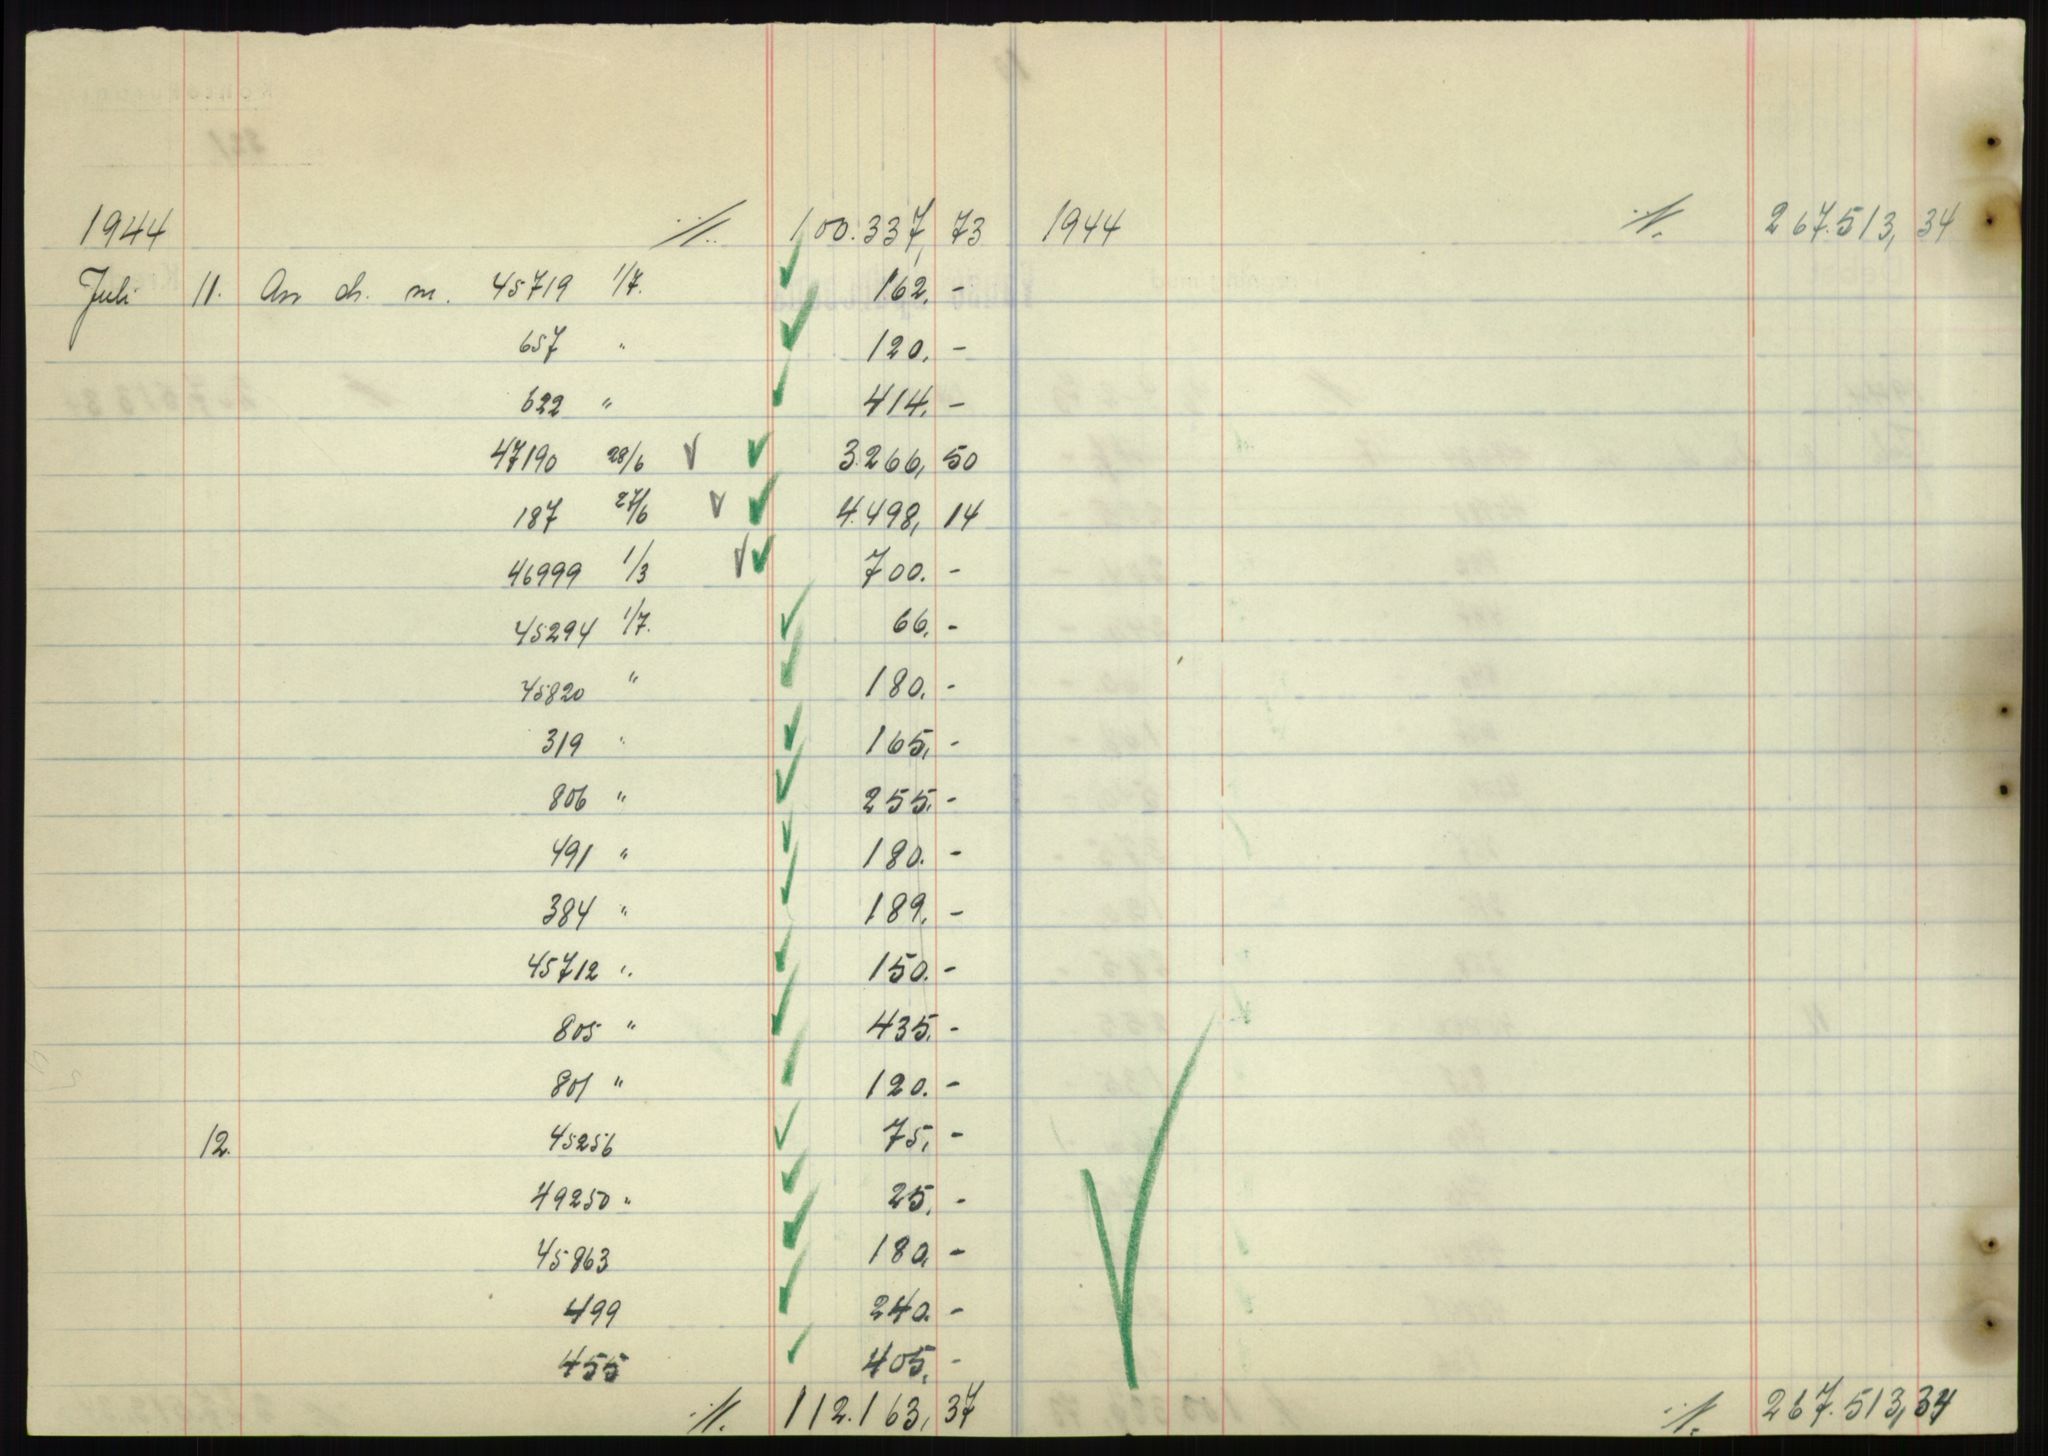 1944 ·/. 100.337,73 1944 ·/. 267.513,34
Juli 11. An ch. m. 45719 1/7. 162.-
657 " 120.-
622 " 414.-
47190 28/6 3.266,50
187 27/6 4.498,14
46999 1/3 700.-
45294 1/7. 66.-
45820 " 180.-
319 " 165.-
806 " 255.-
491 " 180.-
384 " 189.-
45712 " 150.-
805 " 435.-
801 " 120.-
12. 45256 75.-
49250 " 25.-
45863 180.-
499 240.-
455 405.-
·/. 112.163,37 ·/. 267.513,34